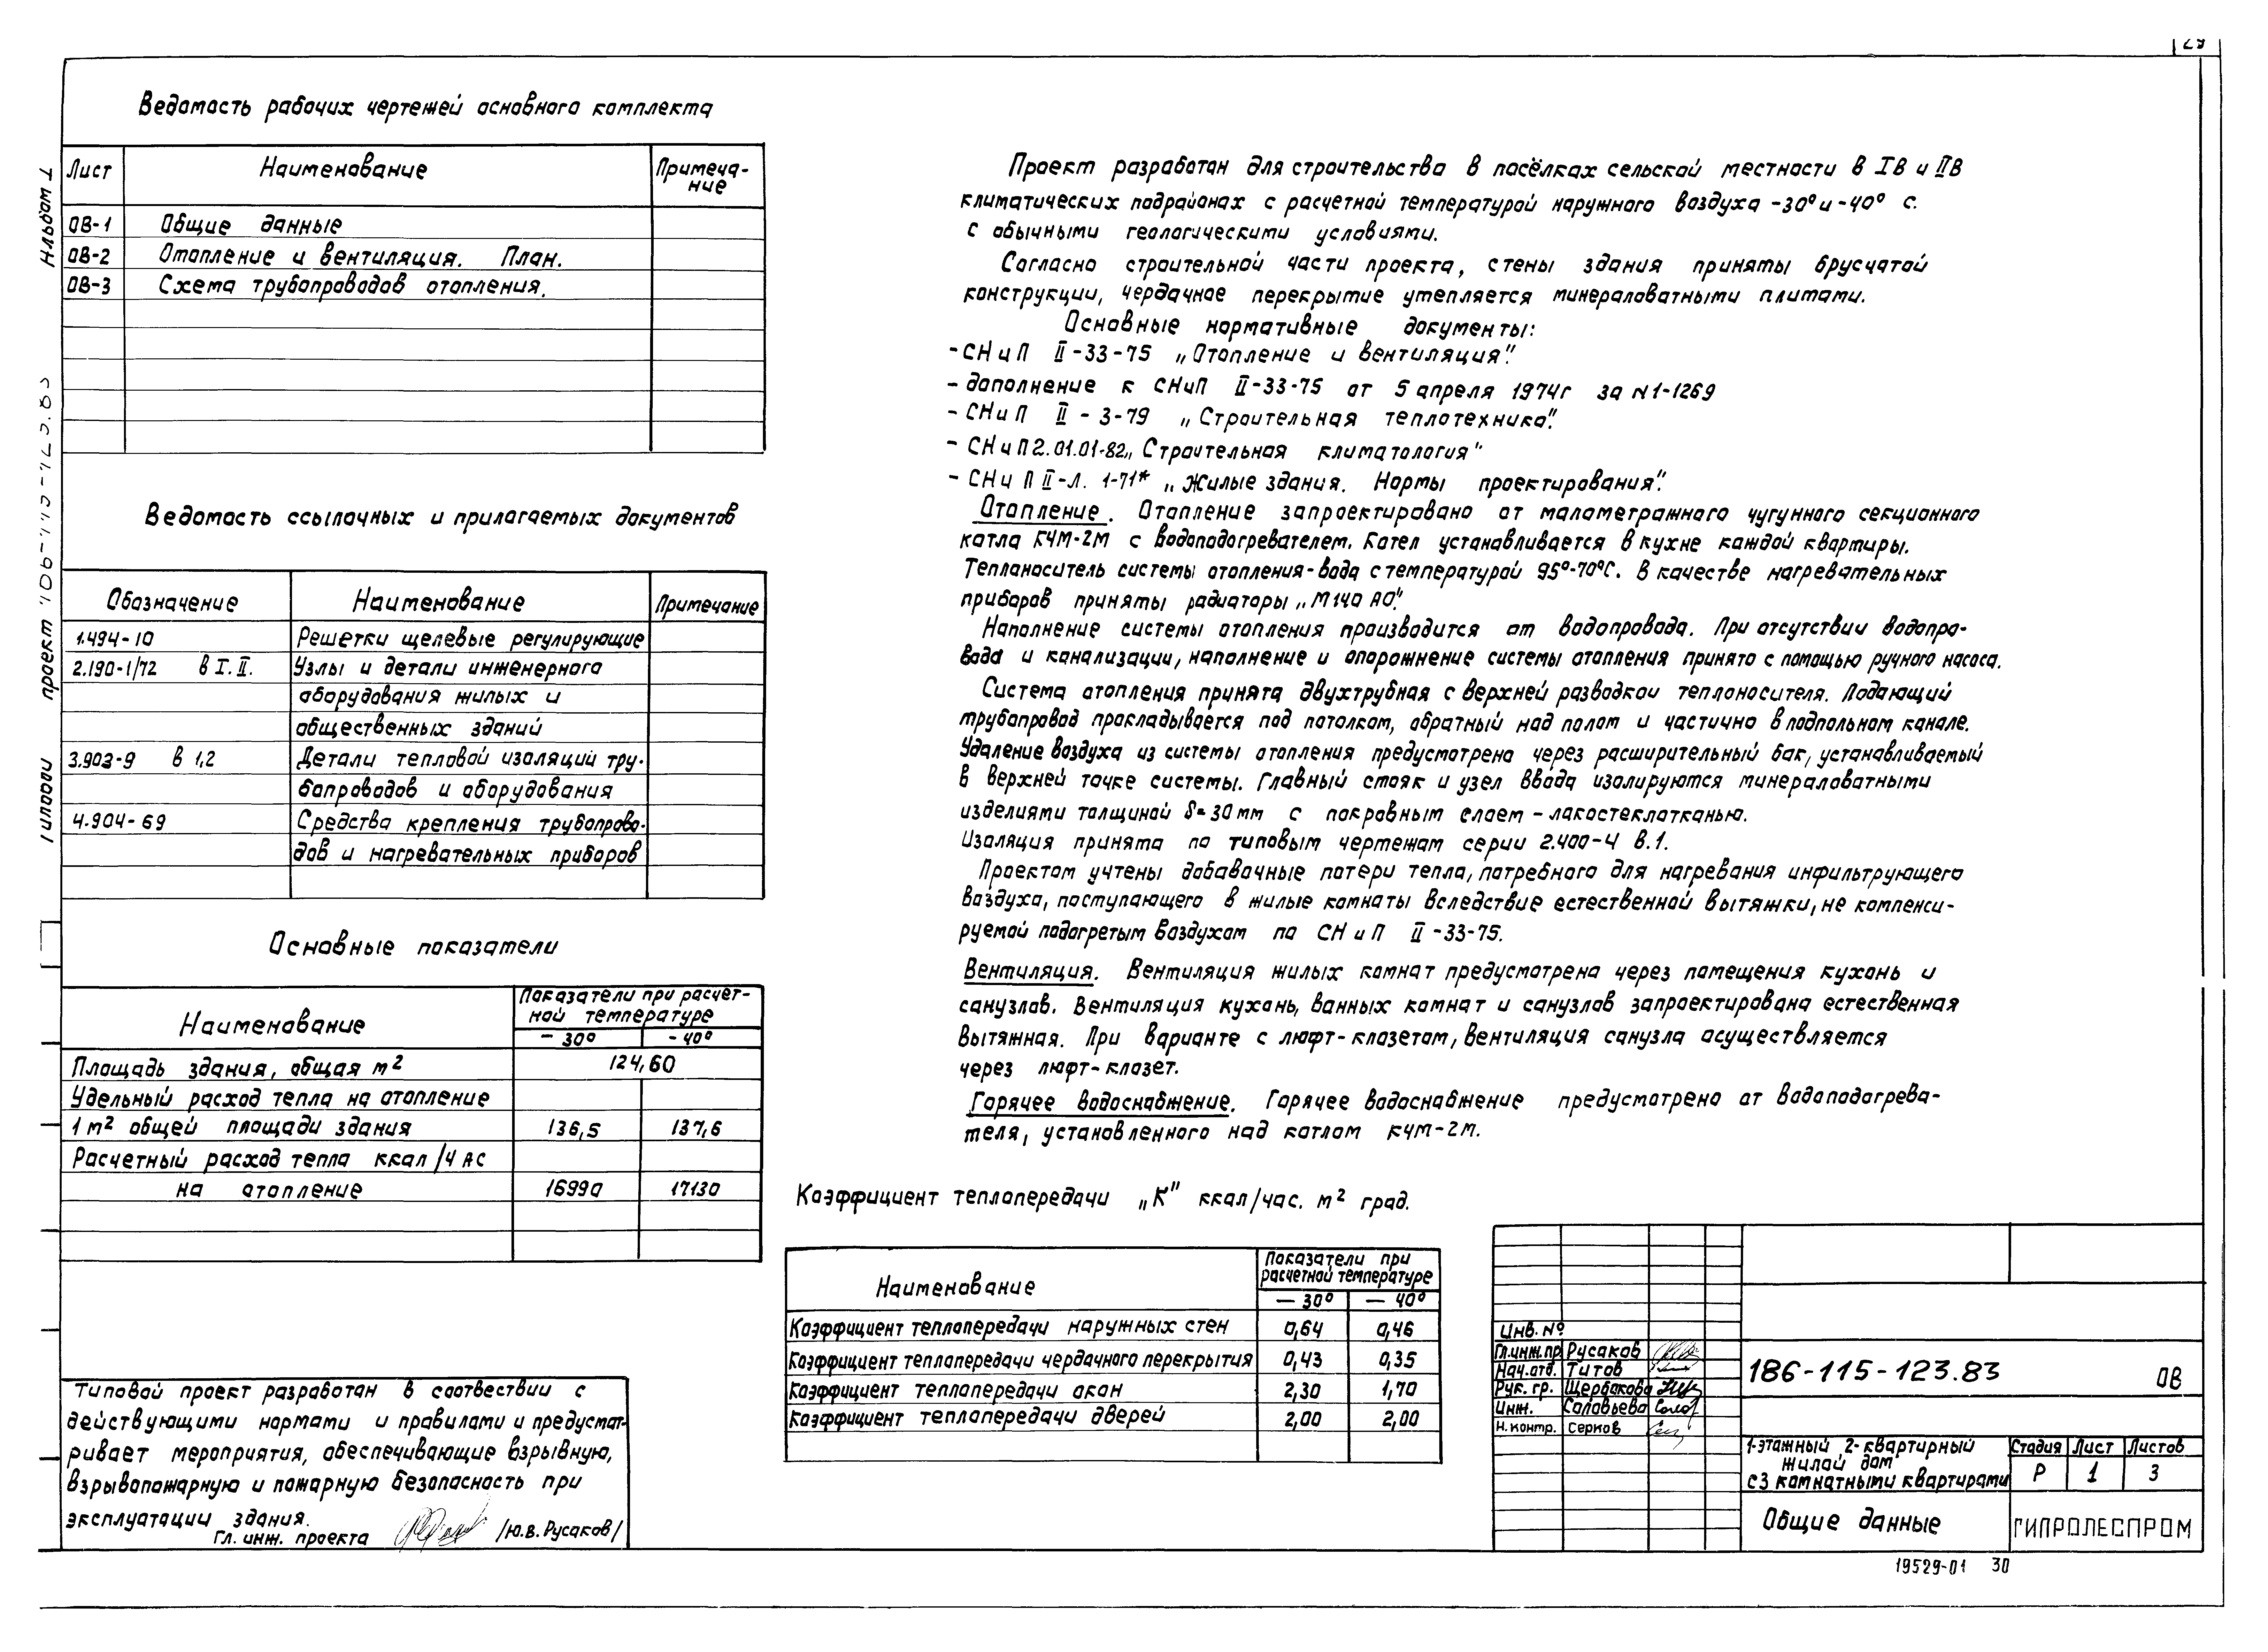 29
Альбом I
Типовой проект 186-115-123.83
Ведомость рабочих чертежей основного комплекта
Лист Наименование Примеча-
ние
ОВ-1 Общие данные
ОВ-2 Отопление и вентиляция. План.
ОВ-3 Схема трубопроводов отопления.
Ведомость ссылочных и прилагаемых документов
Обозначение Наименование Примечание
1.494-10 Решетки щелевые регулирующие
2.190-1/72 в I. II. Узлы и детали инженерного
оборудования жилых и
общественных зданий
3.903-9 в 1,2 Детали тепловой изоляции тру-
бопроводов и оборудования
4.904-69 Средства крепления трубопрово-
дов и нагревательных приборов
Основные показатели
Наименование Показатели при расчет-
ной температуре
-30° -40°
Площадь здания, общая м² 124,60
Удельный расход тепла на отопление
1 м² общей площади здания 136,5 137,6
Расчетный расход тепла ккал/час
на отопление 16990 17130
Типовой проект разработан в соотвествии с
действующими нормами и правилами и предусмат-
ривает мероприятия, обеспечивающие взрывную,
взрывопожарную и пожарную безопасность при
эксплуатации здания.
Гл. инж. проекта /Ю.В. Русаков/
Проект разработан для строительства в посёлках сельской местности в IВ и IIВ
климатических подрайонах с расчетной температурой наружного воздуха -30° и -40° с.
с обычными геологическими условиями.
Согласно строительной части проекта, стены здания приняты брусчатой
конструкции, чердачное перекрытие утепляется минераловатными плитами.
Основные нормативные документы:
- СНиП II-33-75 „Отопление и вентиляция".
- дополнение к СНиП II-33-75 от 5 апреля 1974г за N1-1269
- СНиП II - 3-79 „Строительная теплотехника".
- СНиП 2.01.01-82 „Строительная климатология"
- СНиП II-Л. 1-71* „Жилые здания. Нормы проектирования".
Отопление. Отопление запроектировано от малометражного чугунного секционного
котла КЧМ-2М с водоподогревателем. Котел устанавливается в кухне каждой квартиры.
Теплоноситель системы отопления-вода с температурой 95°-70°С. В качестве нагревательных
приборов приняты радиаторы „М140 АО".
Наполнение системы отопления производится от водопровода. При отсутствии водопро-
вода и канализации, наполнение и опорожнение системы отопления принято с помощью ручного насоса.
Система отопления принята двухтрубная с верхней разводкой теплоносителя. Подающий
трубопровод прокладывается под потолком, обратный над полом и частично в подпольном канале.
Удаление воздуха из системы отопления предусмотрено через расширительный бак, устанавливаемый
в верхней точке системы. Главный стояк и узел ввода изолируются минераловатными
изделиями толщиной δ=30мм с покровным слоем - лакостеклотканью.
Изоляция принята по типовым чертежам серии 2.400-4 в.1.
Проектом учтены добавочные потери тепла, потребного для нагревания инфильтрующего
воздуха, поступающего в жилые комнаты вследствие естественной вытяжки, не компенси-
руемой подогретым воздухом по СНиП II-33-75.
Вентиляция. Вентиляция жилых комнат предусмотрена через помещения кухонь и
санузлов. Вентиляция кухонь, ванных комнат и санузлов запроектирована естественная
вытяжная. При варианте с люфт-клозетом, вентиляция санузла осуществляется
через люфт-клозет.
Горячее водоснабжение. Горячее водоснабжение предусмотрено от водоподогрева-
теля, установленного над котлом КЧМ-2М.
Коэффициент теплопередачи „К" ккал/час. м² град.
Наименование Показатели при
расчетной температуре
— 30° — 40°
Коэффициент теплопередачи наружных стен 0,64 0,46
Коэффициент теплопередачи чердачного перекрытия 0,43 0,35
Коэффициент теплопередачи окон 2,30 1,70
Коэффициент теплопередачи дверей 2,00 2,00
Инв. №
Гл.инж.пр Русаков
Нач.отд. Титов
Рук. гр. Щербакова
Инж. Соловьева
Н.контр. Серков
186-115-123.83 ОВ
1-этажный 2-квартирный
жилой дом
с 3 комнатными квартирами
Стадия Лист Листов
Р 1 3
Общие данные
ГИПРОЛЕСПРОМ
19529-01 30